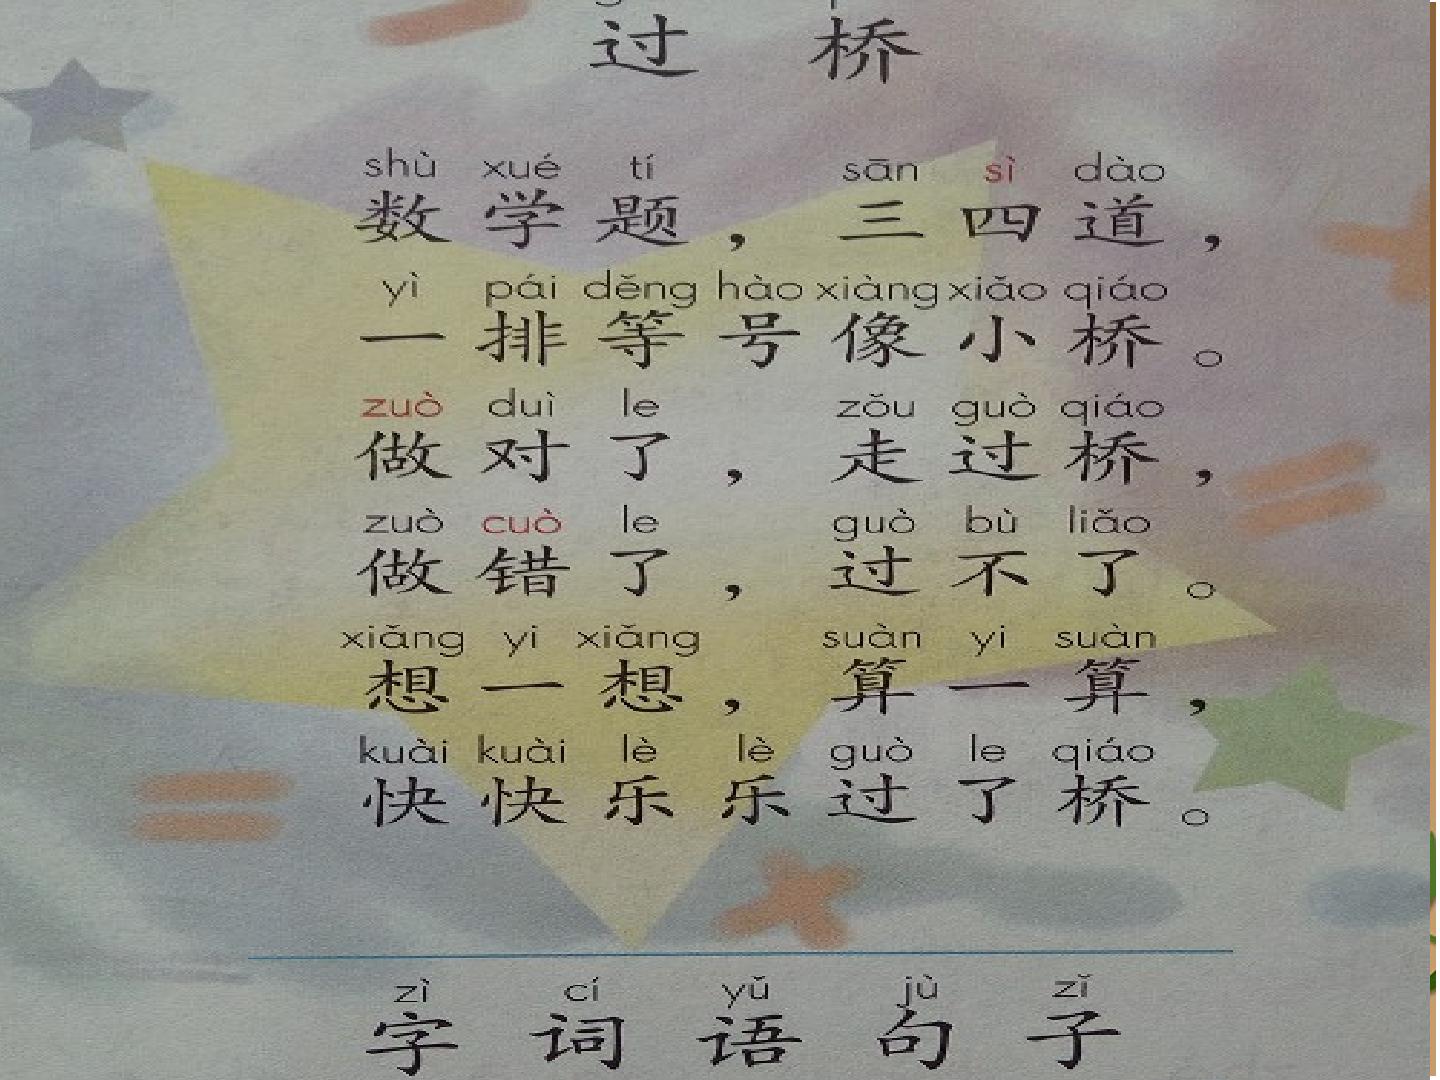 过 桥
shù xué tí sān sì dào
数学题，三四道，
yì pái děng hào xiàng xiǎo qiáo
一排等号像小桥。
zuò duì le zǒu guò qiáo
做对了，走过桥，
zuò cuò le guò bù liǎo
做错了，过不了。
xiǎng yi xiǎng suàn yi suàn
想一想，算一算，
kuài kuài lè lè guò le qiáo
快快乐乐过了桥。
zì cí yǔ jù zǐ
字 词 语 句 子